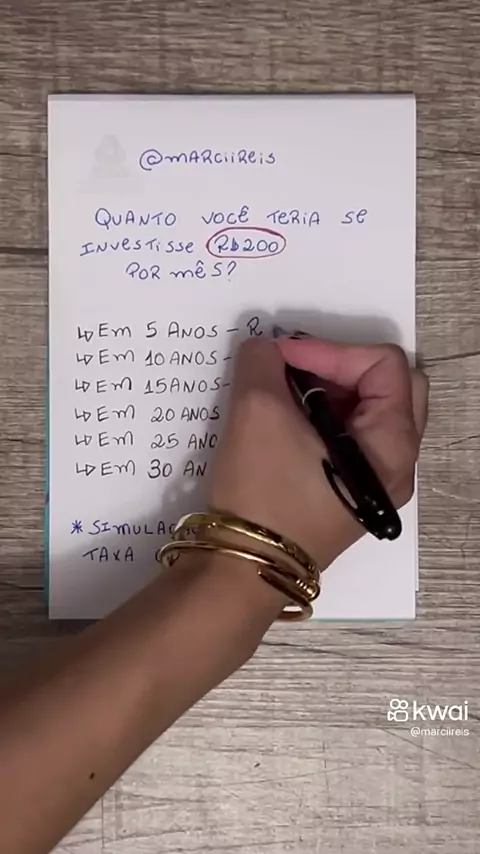 @MARCIIREIS
QUANTO VOCÊ TERIA SE
INVESTISSE R$200
POR MÊS?
↳ EM 5 ANOS – R
↳ EM 10 ANOS –
↳ EM 15 ANOS –
↳ EM 20 ANOS
↳ EM 25 ANO
↳ EM 30 AN
* SIMULAÇ
TAXA
kwai
@marciireis